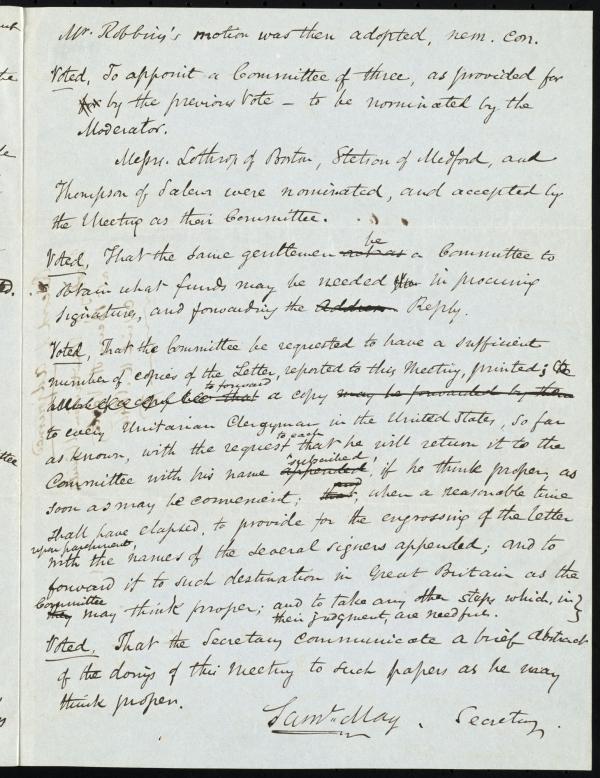 Mr. Robbins's motion was then adopted, nem. con.
Voted, To appoint a Committee of three, as provided for
for by the previous Vote – to be nominated by the
Moderator.
Messrs. Lothrop of Boston, Stetson of Medford, and
Thompson of Salem were nominated, and accepted by
the Meeting as their Committee.
Voted, That the same gentlemen act as be a Committee to
obtain what funds may be needed in procuring
signatures, and forwarding the Address Reply.
Voted, That the Committee be requested to have a sufficient
number of copies of the Letter, reported to this Meeting, printed;
to forward a copy may be forwarded by them
to every Unitarian Clergyman in the United States, so far
as known, with the request to each that he will return it to the
Committee with his name appended subscribed, if he think proper, as
soon as may be convenient; that, and when a reasonable time
shall have elapsed, to provide for the engrossing of the letter
upon parchment,
with the names of the several signers appended; and to
forward it to such destination in Great Britain as the
Committee
they may think proper; and to take any other steps which, in
their judgment, are needful.
Voted, That the Secretary communicate a brief abstract
of the doings of this Meeting to such papers as he may
think proper.
Saml. May, Secretary.